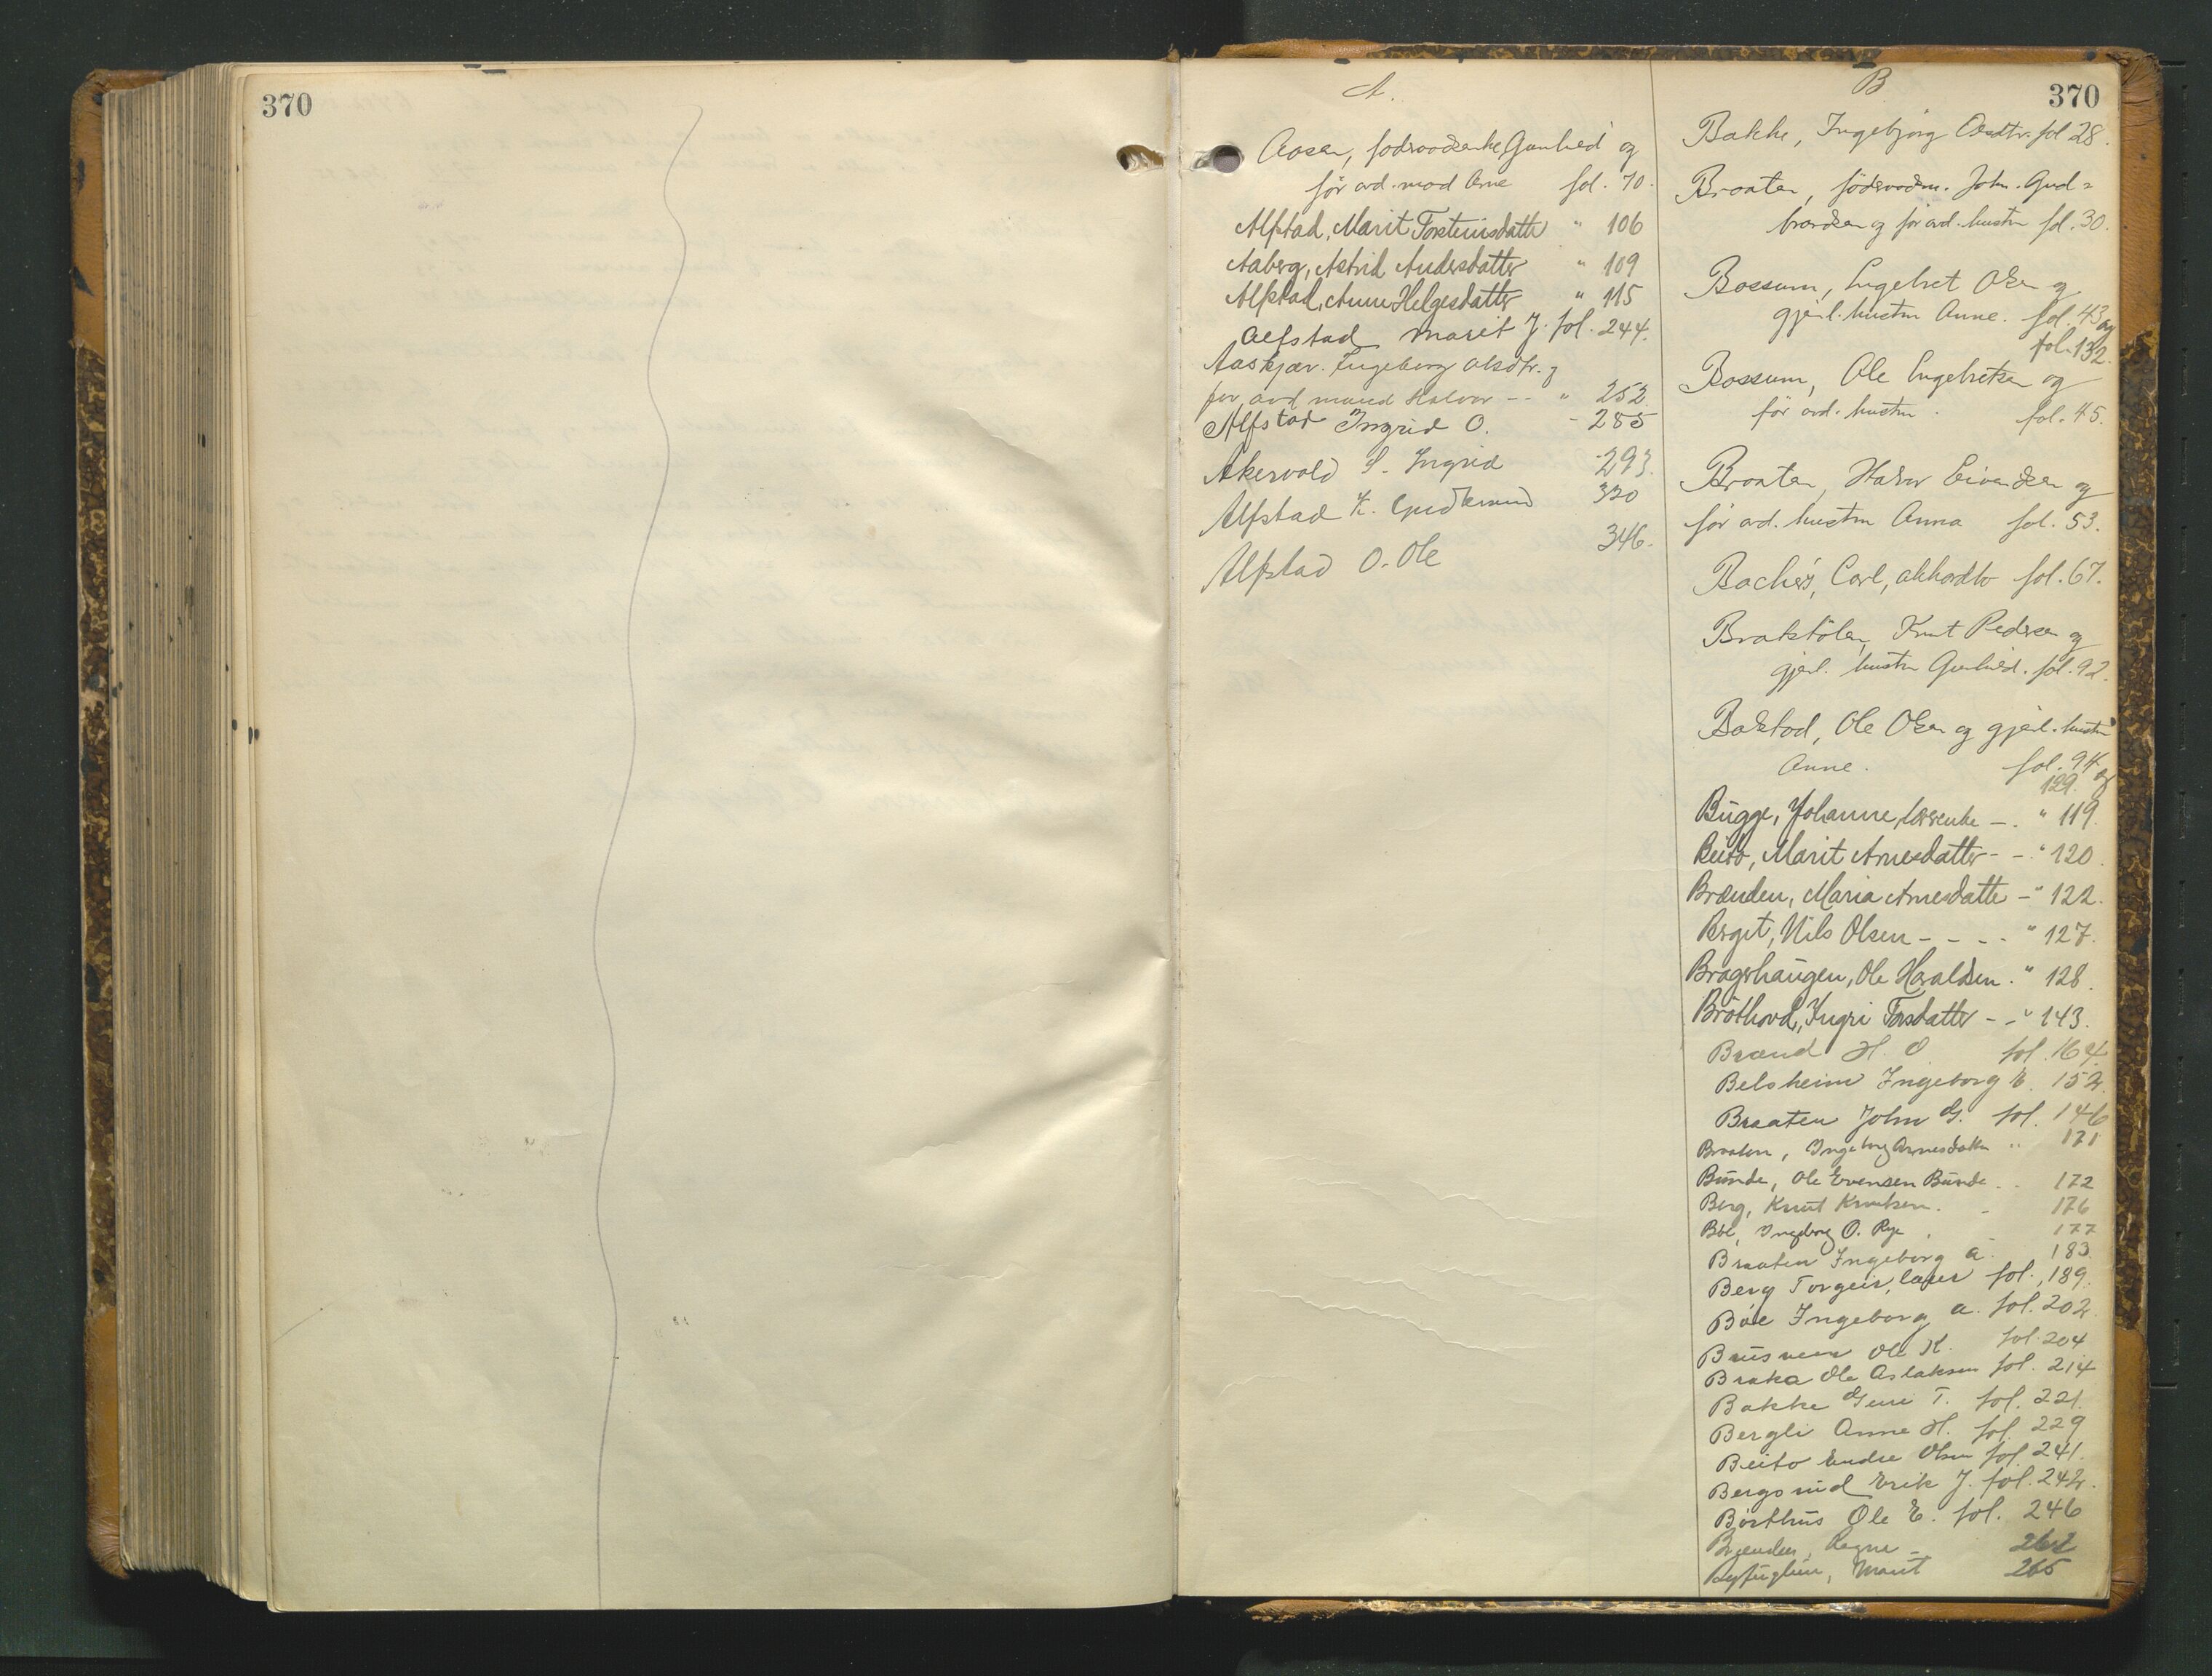 370
370
A.
Aasen, foderaadsenke Gunhild og
før avd. mand Arne fol. 70.
Alfstad, Marit Torsteinsdatter " 106
Aaberg, Astrid Andersdatter " 109
Alfstad, Anne Helgesdatter " 115
Alfstad Marit J. fol. 244.
Aaskjær. Ingeborg Olsdtr. og
før avd mand Halvor -- " 252.
Alfstad Ingrid O. - 285
Akervold S. Ingrid - 293.
Alfstad K. Gudbrand 330
Alfstad O. Ole 346.
B
Bakke, Ingebjørg Olsdtr. fol 28.
Braaten, föderaadsm. John Gud=
brandsen og før avd. hustru fol. 30.
Bossum, Engebret Olsen og
gjenl. hustru Anne. fol. 43 og
fol. 132.
Bossum, Ole Engebretsen og
før avd. hustru. fol. 45.
Braaten, Halvor Eivendsen og
før avd. hustru Anna fol. 53.
Bache's, Carl, akkordbo fol. 67.
Bratstölen, Knut Pedersen og
gjenl. hustru Gunhild. fol. 92.
Bakstad, Ole Olsen og gjenl. hustru
Anne. fol. 94 og
129.
Bugge, Johanne, lærerenke -. " 119.
Beito, Marit Arnesdatter - -. " 120.
Brænden, Maria Arnesdatter - " 122.
Berget, Nils Olsen - - - - " 127.
Bragerhaugen, Ole Haraldsen. " 128.
Bröthovd, Ingri Torsdatter - - " 143.
Brænd H. O. fol. 164.
Belsheim Ingeborg E. 152.
Braaten John G. fol. 146
Braaten, Ingeborg Arnesdatter " 171
Bunde, Ole Evensen Bunde . . 172
Berg, Knut Knutsen. - 176
Böe, Ingeborg O. Rye 177
Braaten Ingeborg A. 183.
Berg Torgeir, lærer fol. 189.
Böe Ingeborg A. fol. 202.
Brusveen Ole K. fol. 204
Braka Ole Aslaksen fol. 214
Bakke Guri T. fol. 221.
Bergli Anne H. fol. 229
Beito Endre Olsen fol. 241.
Bergsrud Erik J. fol. 242.
Börthus Ole E. fol. 246
Brænden, Ragne - 262
Byfuglien, Marit 265